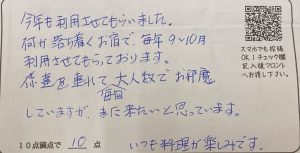 今年も利用させてもらいました。
何か落ち着くお宿で、毎年9~10月
利用させてもらっております。
後輩を連れて大人数でお邪魔
毎回
していますが、また来たいと思っています。
10点満点で 10 点
いつも料理が楽しみです。
スマホでも投稿
OK!チェック欄
記入後フロント
へお渡し下さい。